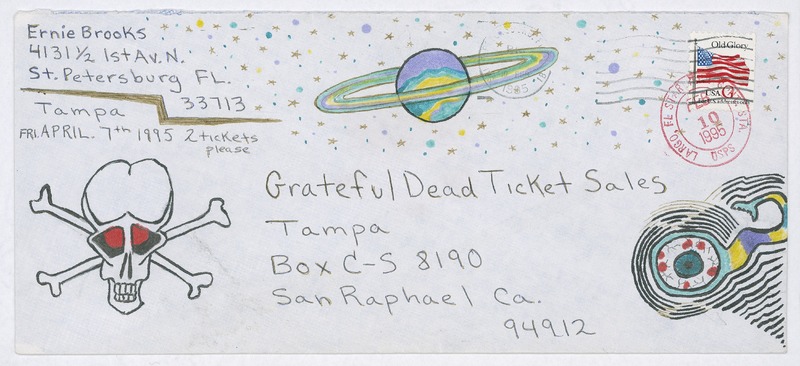 Ernie Brooks
4131 1/2 1st Av. N.
St. Petersburg FL.
33713
Tampa
FRI. APRIL. 7th 1995 2 tickets
please
Old Glory
USA G
Grateful Dead Ticket Sales
Tampa
Box C-S 8190
San Raphael Ca.
94912
LARGO, FL
10
1995
USPS
1995